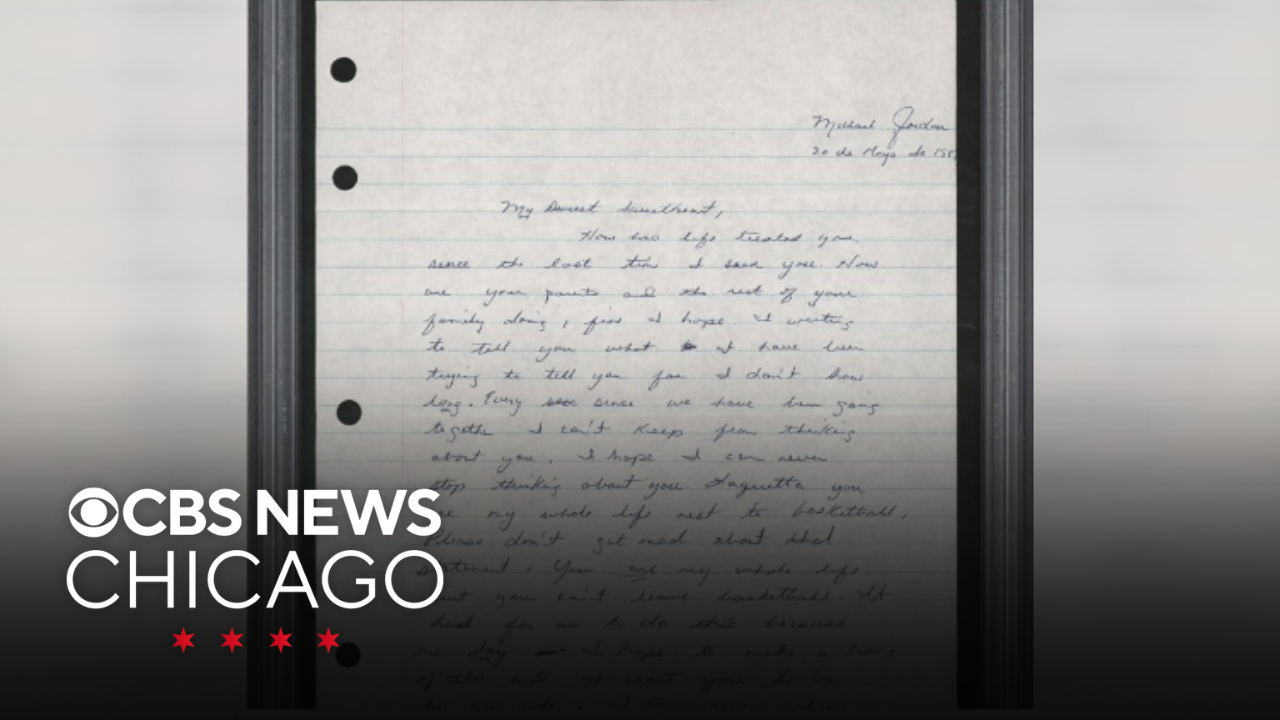 Michael Jordan
20 de Mayo de 198
My Dearest Sweetheart,
How has life treated you
since the last time I seen you. How
are your parents and the rest of your
family doing, fine I hope. I writing
to tell you what I have been
trying to tell you for I don't know
long. Every since we have been going
together I can't keep from thinking
about you. I hope I can never
stop thinking about you Laquetta you
are my whole life next to basketball.
Please don't get mad about that
statement. You are my whole life
but you can't leave basketball. It
hard for me to do this because
one day I hope to make a living
of this and I want you to be
by my side. I
CBS NEWS
CHICAGO